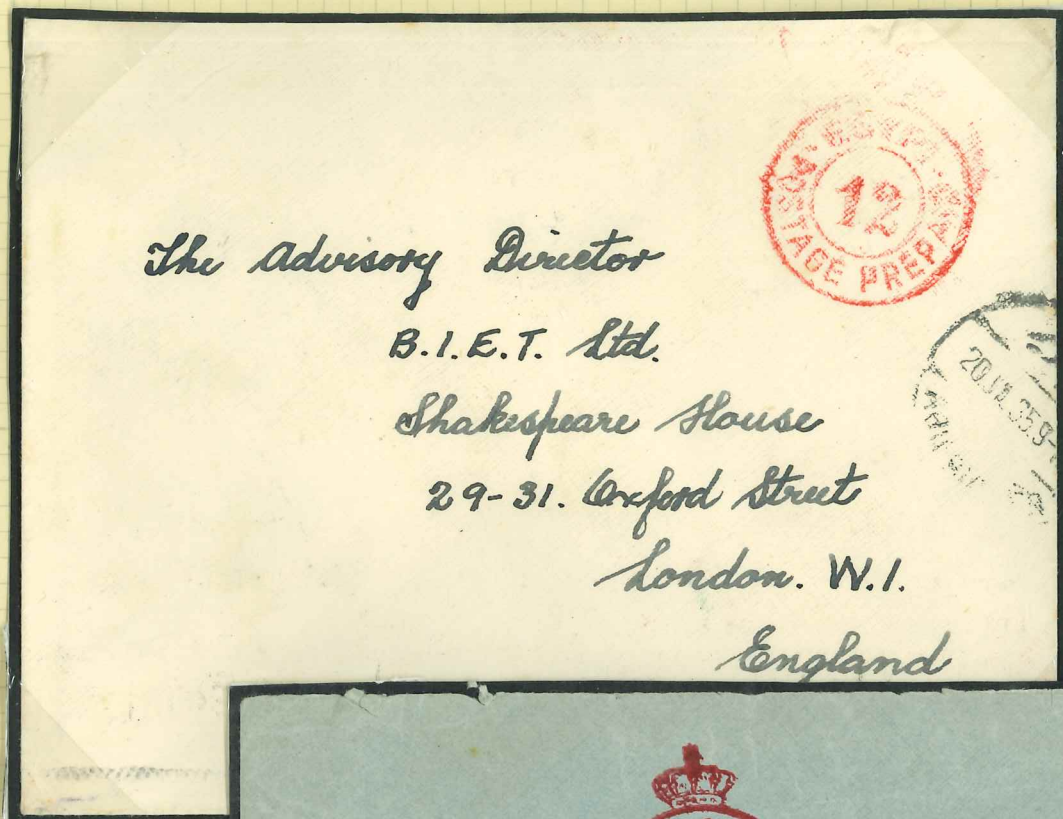 EGYPT
POSTAGE PREPAID
12
The Advisory Director
B.I.E.T. Ltd.
Shakespeare House
29-31. Oxford Street
London. W.1.
England